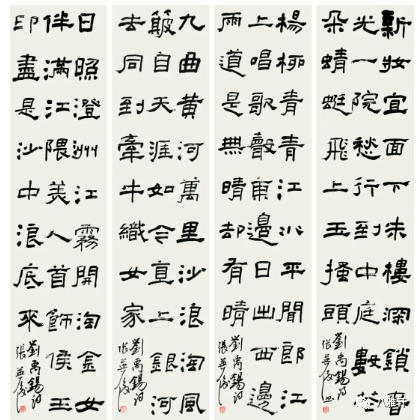 新妝宜面下朱樓深鎖春
光一院愁行到中庭數花
朵蜻蜓飛上玉搔頭
劉禹錫詩
楊柳青青江水平聞郎江
上唱歌聲東邊日出西邊
雨道是無晴却有晴
劉禹錫詩
九曲黃河萬里沙浪淘風
簸自天涯如今直上銀河
去同到牽牛織女家
劉禹錫詩
日照澄洲江霧開淘金女
伴滿江隈美人首飾侯王
印盡是沙中浪底來
劉禹錫詩